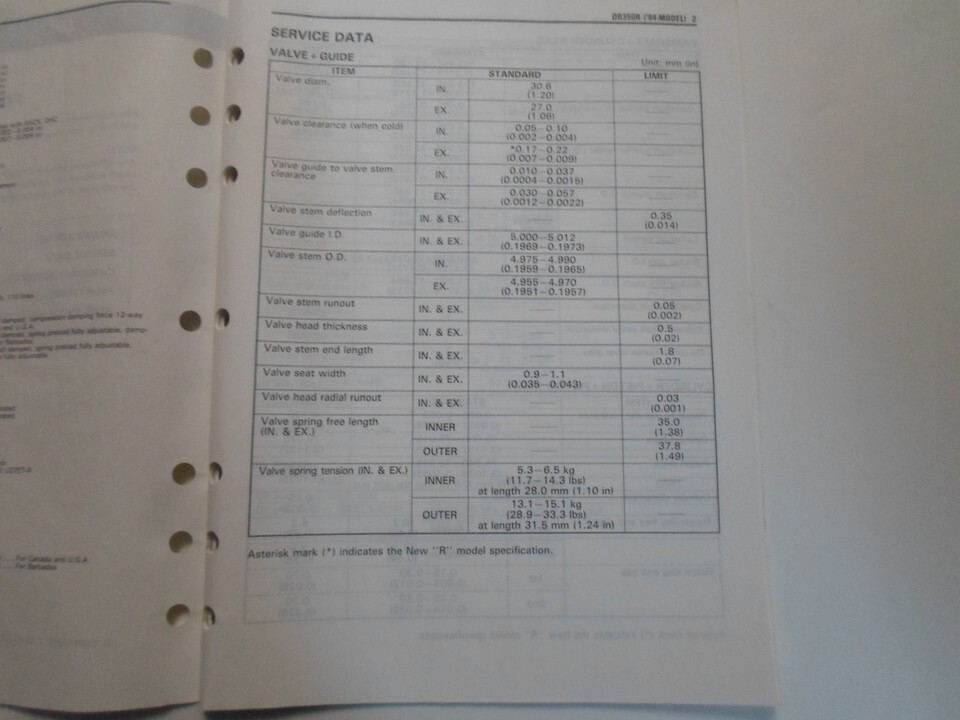 DR350R ('94-MODEL) 2
SERVICE DATA
VALVE + GUIDE
Unit: mm (in)
ITEM STANDARD LIMIT
Valve diam. IN. 30.6 (1.20)
EX. 27.0 (1.06)
Valve clearance (when cold) IN. 0.05–0.10 (0.002–0.004)
EX. *0.17–0.22 (0.007–0.009)
Valve guide to valve stem clearance IN. 0.010–0.037 (0.0004–0.0015)
EX. 0.030–0.057 (0.0012–0.0022)
Valve stem deflection IN. & EX. 0.35 (0.014)
Valve guide I.D. IN. & EX. 5.000–5.012 (0.1969–0.1973)
Valve stem O.D. IN. 4.975–4.990 (0.1959–0.1965)
EX. 4.955–4.970 (0.1951–0.1957)
Valve stem runout IN. & EX. 0.05 (0.002)
Valve head thickness IN. & EX. 0.5 (0.02)
Valve stem end length IN. & EX. 1.8 (0.07)
Valve seat width IN. & EX. 0.9–1.1 (0.035–0.043)
Valve head radial runout IN. & EX. 0.03 (0.001)
Valve spring free length (IN. & EX.) INNER 35.0 (1.38)
OUTER 37.8 (1.49)
Valve spring tension (IN. & EX.) INNER 5.3–6.5 kg (11.7–14.3 lbs) at length 28.0 mm (1.10 in)
OUTER 13.1–15.1 kg (28.9–33.3 lbs) at length 31.5 mm (1.24 in)
Asterisk mark (*) indicates the New "R" model specification.
damped, compression damping force 12-way
and U.S.A.
damped, spring preload fully adjustable, damp-
damped, spring preload fully adjustable,
fully adjustable
For Canada and U.S.A.
For Barbados